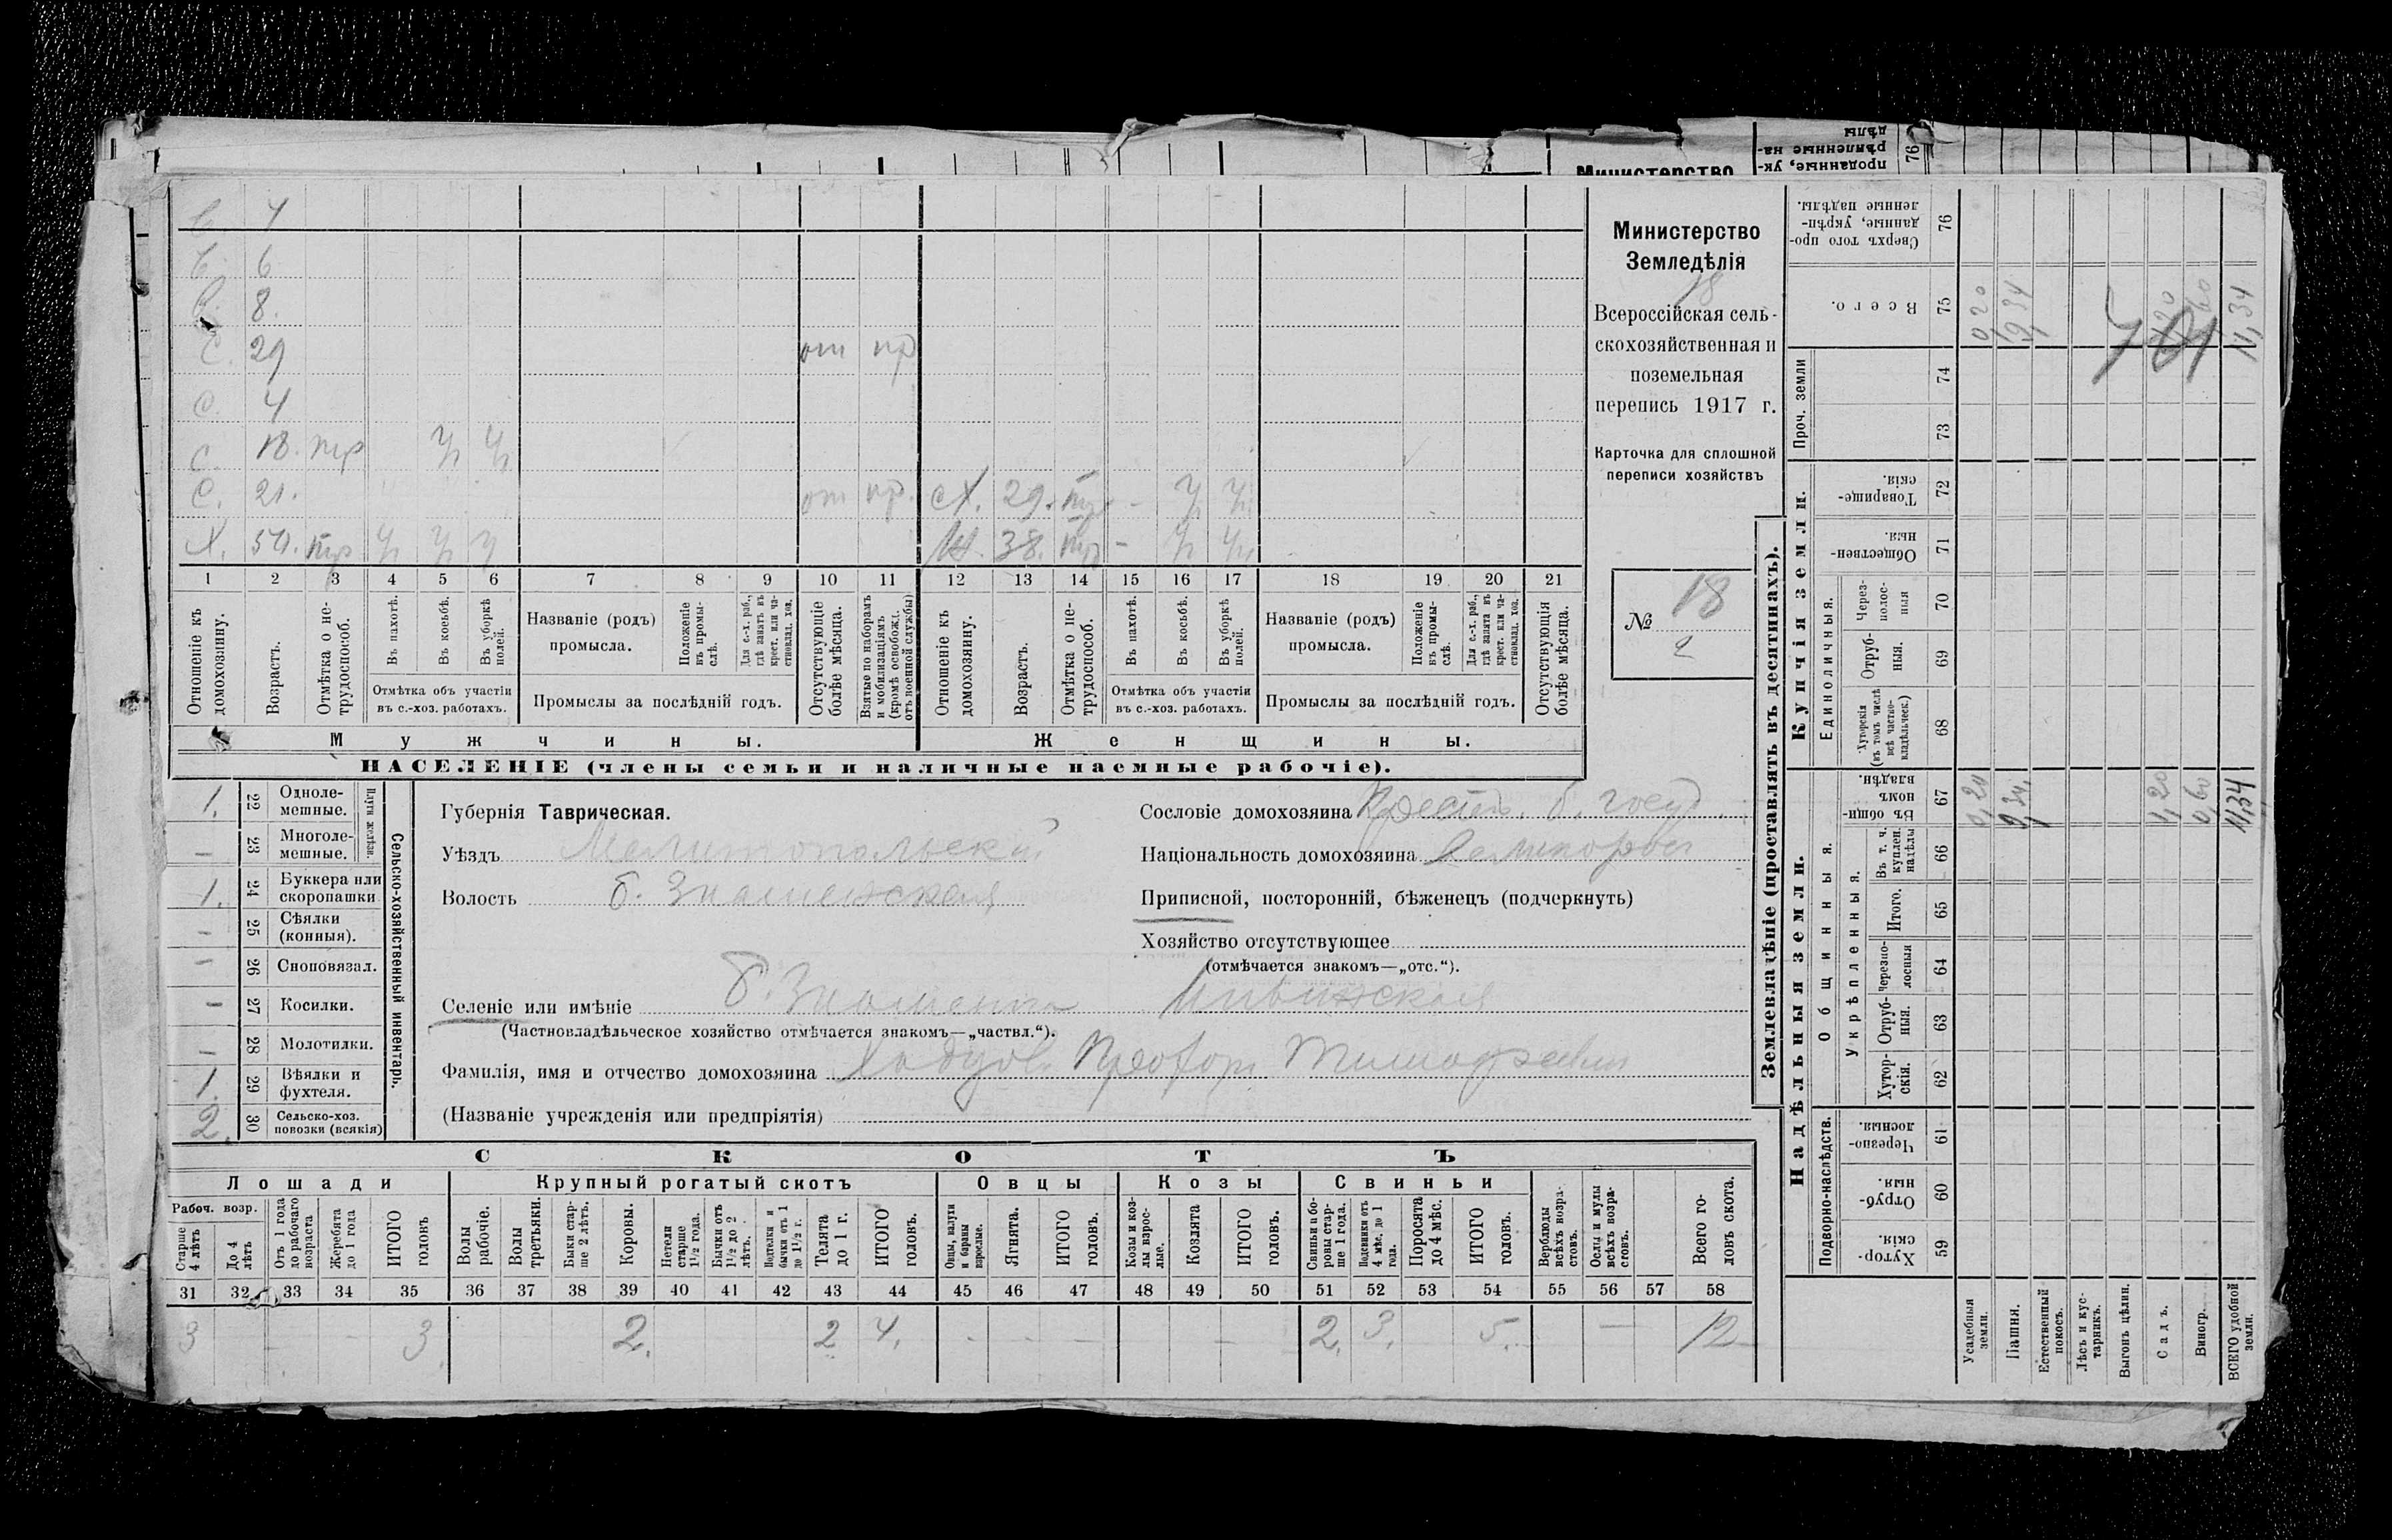 проданные, ук-
рѣпленные на-
дѣлы
76
Министерство
Министерство
Земледѣлія
18
Всероссійская сель-
скохозяйственная и
поземельная
перепись 1917 г.
Карточка для сплошной
переписи хозяйствъ
№ 18
2
С 4
С. 6
С. 8.
С. 29 от пр
С. 4
С. 18. тр ч ч
С. 21. от пр. сх. 29. тр - ч ч
Х. 50. тр ч ч ч Ж. 38. тр - ч ч
1 2 3 4 5 6 7 8 9 10 11 12 13 14 15 16 17 18 19 20 21
Отношеніе къ домохозяину.
Возрастъ.
Отмѣтка о не-трудоспособ.
Въ пахотѣ.
Въ косьбѣ.
Въ уборкѣ полей.
Отмѣтка объ участіи въ с.-хоз. работахъ.
Названіе (родъ) промысла.
Положеніе въ промы-слѣ.
Для с.-х. раб., гдѣ занятъ въ крест. или ча-стновлад. хоз.
Промыслы за послѣдній годъ.
Отсутствующіе болѣе мѣсяца.
Взятые по наборамъ и мобилизаціямъ (кромѣ освобожд. отъ военной службы)
Отношеніе къ домохозяину.
Возрастъ.
Отмѣтка о не-трудоспособ.
Въ пахотѣ.
Въ косьбѣ.
Въ уборкѣ полей.
Отмѣтка объ участіи въ с.-хоз. работахъ.
Названіе (родъ) промысла.
Положеніе въ промы-слѣ.
Для с.-х. раб., гдѣ занята въ крест. или ча-стновлад. хоз.
Промыслы за послѣдній годъ.
Отсутствующія болѣе мѣсяца.
Мужчины. Женщины.
НАСЕЛЕНІЕ (члены семьи и наличные наемные рабочіе).
Сельско-хозяйственный инвентарь.
Плуги желѣзн.
1. 22 Одноле-мешные.
— 23 Многоле-мешные.
1. 24 Буккера или скоропашки
— 25 Сѣялки (конныя).
— 26 Сноповязал.
— 27 Косилки.
— 28 Молотилки.
1. 29 Вѣялки и фухтеля.
2. 30 Сельско-хоз. повозки (всякія)
Губернія Таврическая.
Уѣздъ Мелитопольский
Волость б. Знаменская
Селеніе или имѣніе Б. Знаменка
(Частновладѣльческое хозяйство отмѣчается знакомъ—„частвл.“).
Фамилія, имя и отчество домохозяина Тимофеевич
(Названіе учрежденія или предпріятія)
Сословіе домохозяина Кресть. б. госуд.
Національность домохозяина
Приписной, посторонній, бѣженецъ (подчеркнуть)
Хозяйство отсутствующее
(отмѣчается знакомъ—„отс.“).
СКОТЪ
Лошади Крупный рогатый скотъ Овцы Козы Свиньи
Рабоч. возр.
Старше 4 лѣтъ
До 4 лѣтъ
Отъ 1 года до рабочаго возраста
Жеребята до 1 года
ИТОГО головъ
Волы рабочіе.
Волы третьяки.
Быки стар-ше 2 лѣтъ.
Коровы.
Нетели старше 1½ года.
Бычки отъ 1½ до 2 лѣтъ.
Подтелки и бычки отъ 1 до 1½ г.
Телята до 1 г.
ИТОГО головъ.
Овцы, валухи и бараны взрослые.
Ягнята.
ИТОГО головъ.
Козы и коз-лы взрос-лые.
Козлята
ИТОГО головъ.
Свиньи и бо-ровы стар-ше 1 года.
Подсвинки отъ 4 мѣс. до 1 года.
Поросята до 4 мѣс.
ИТОГО головъ.
Верблюды всѣхъ возра-стовъ.
Ослы и мулы всѣхъ возра-стовъ.
Всего го-ловъ скота.
31 32 33 34 35 36 37 38 39 40 41 42 43 44 45 46 47 48 49 50 51 52 53 54 55 56 57 58
3 - 3. 2. 2 4. - - - - 2. 3. 5. — 12
Землевладѣніе (проставлять въ десятинахъ).
Надѣльныя земли. Купчія земли. Проч. земли
Подворно-наслѣдств.
Общинныя.
Укрѣпленныя.
Единоличныя.
Хутор-скія. 59
Отруб-ныя. 60
Черезпо-лосныя. 61
Хутор-скія. 62
Отруб-ныя. 63
Черезпо-лосныя 64
Итого. 65
Въ т. ч. куплен. надѣлы 66
Въ общин-номъ владѣн. 67
Хуторскія (въ томъ числѣ всѣ частно-владѣльческ.) 68
Отруб-ныя. 69
Через-полос-ныя 70
Обществен-ныя. 71
Товарище-скія. 72
73
74
Всего. 75
Сверхъ того про-данные, укрѣп-ленные надѣлы. 76
Усадебныя земли. 0,20 0 20
Пашня. 9,34 9 34
Естественный покосъ.
Лѣсъ и кус-тарникъ.
Выгонъ цѣлин.
Садъ. 1,20 1 20
Виногр. 0,60 0 60
ВСЕГО удобной земли. 11,34 11,34